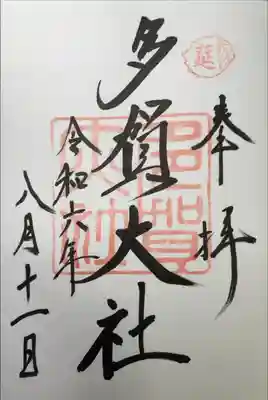 奉拝
延
多賀大社
多賀大社
令和六年
八月十一日